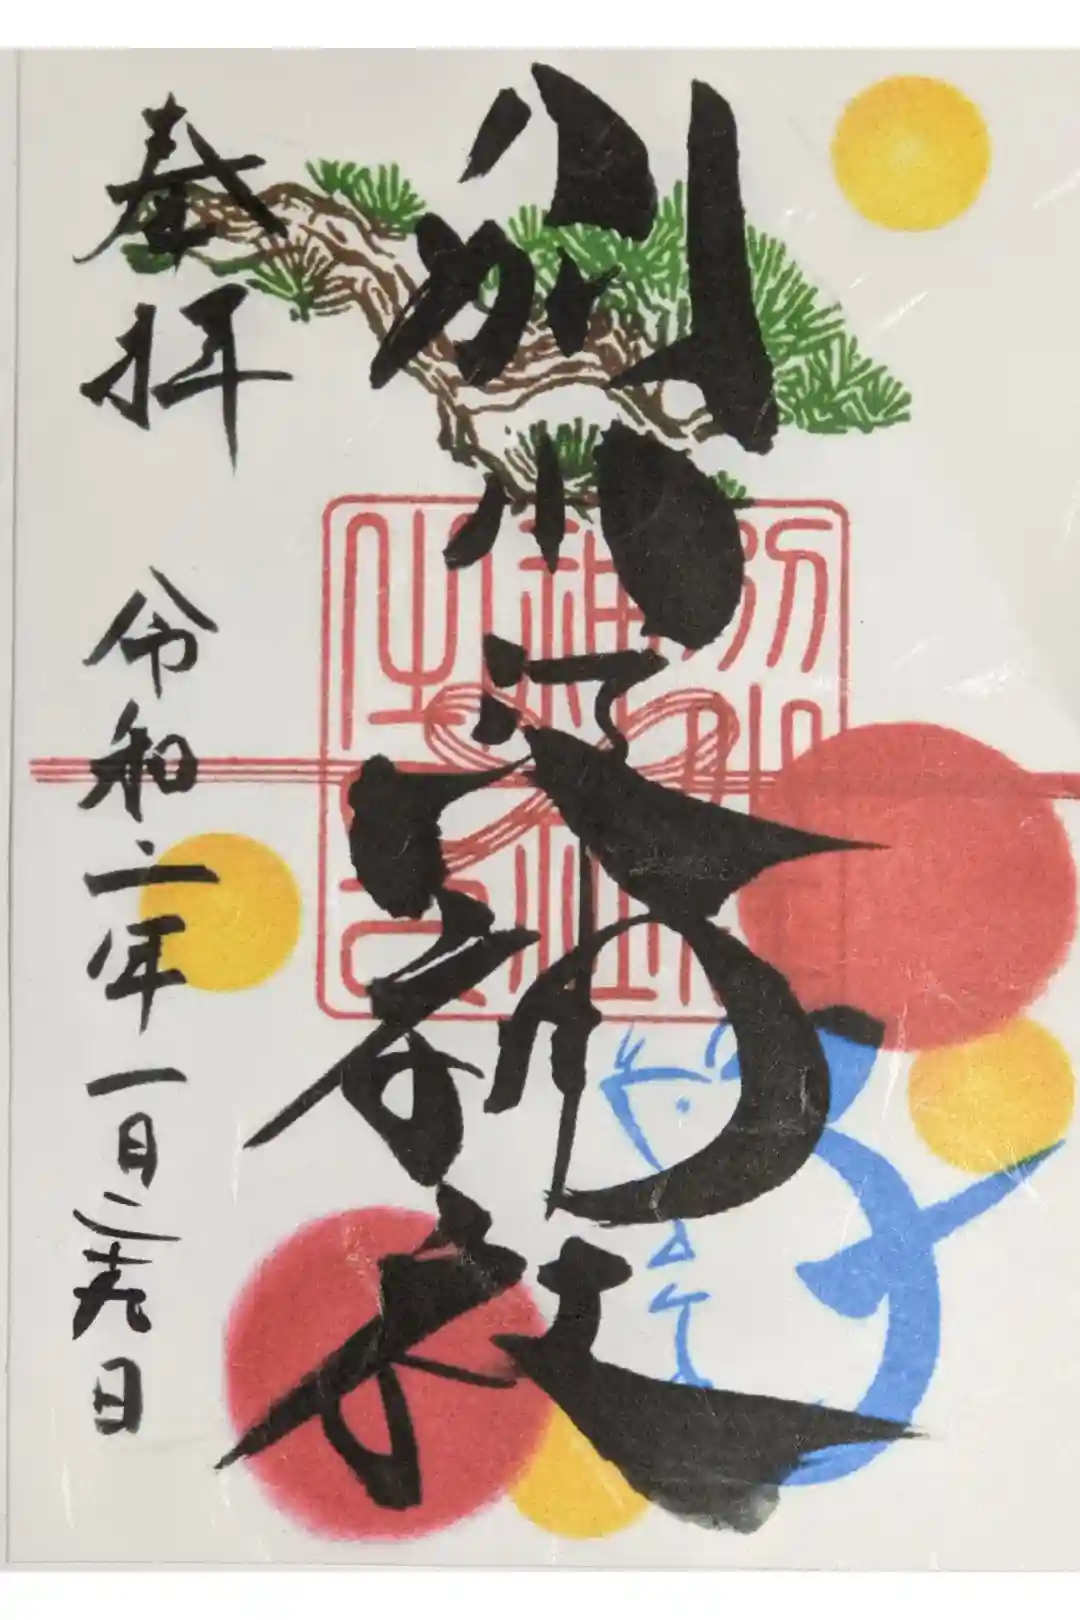 別小江神社
奉拝
令和二年一月二十九日
別小江
神社
之印